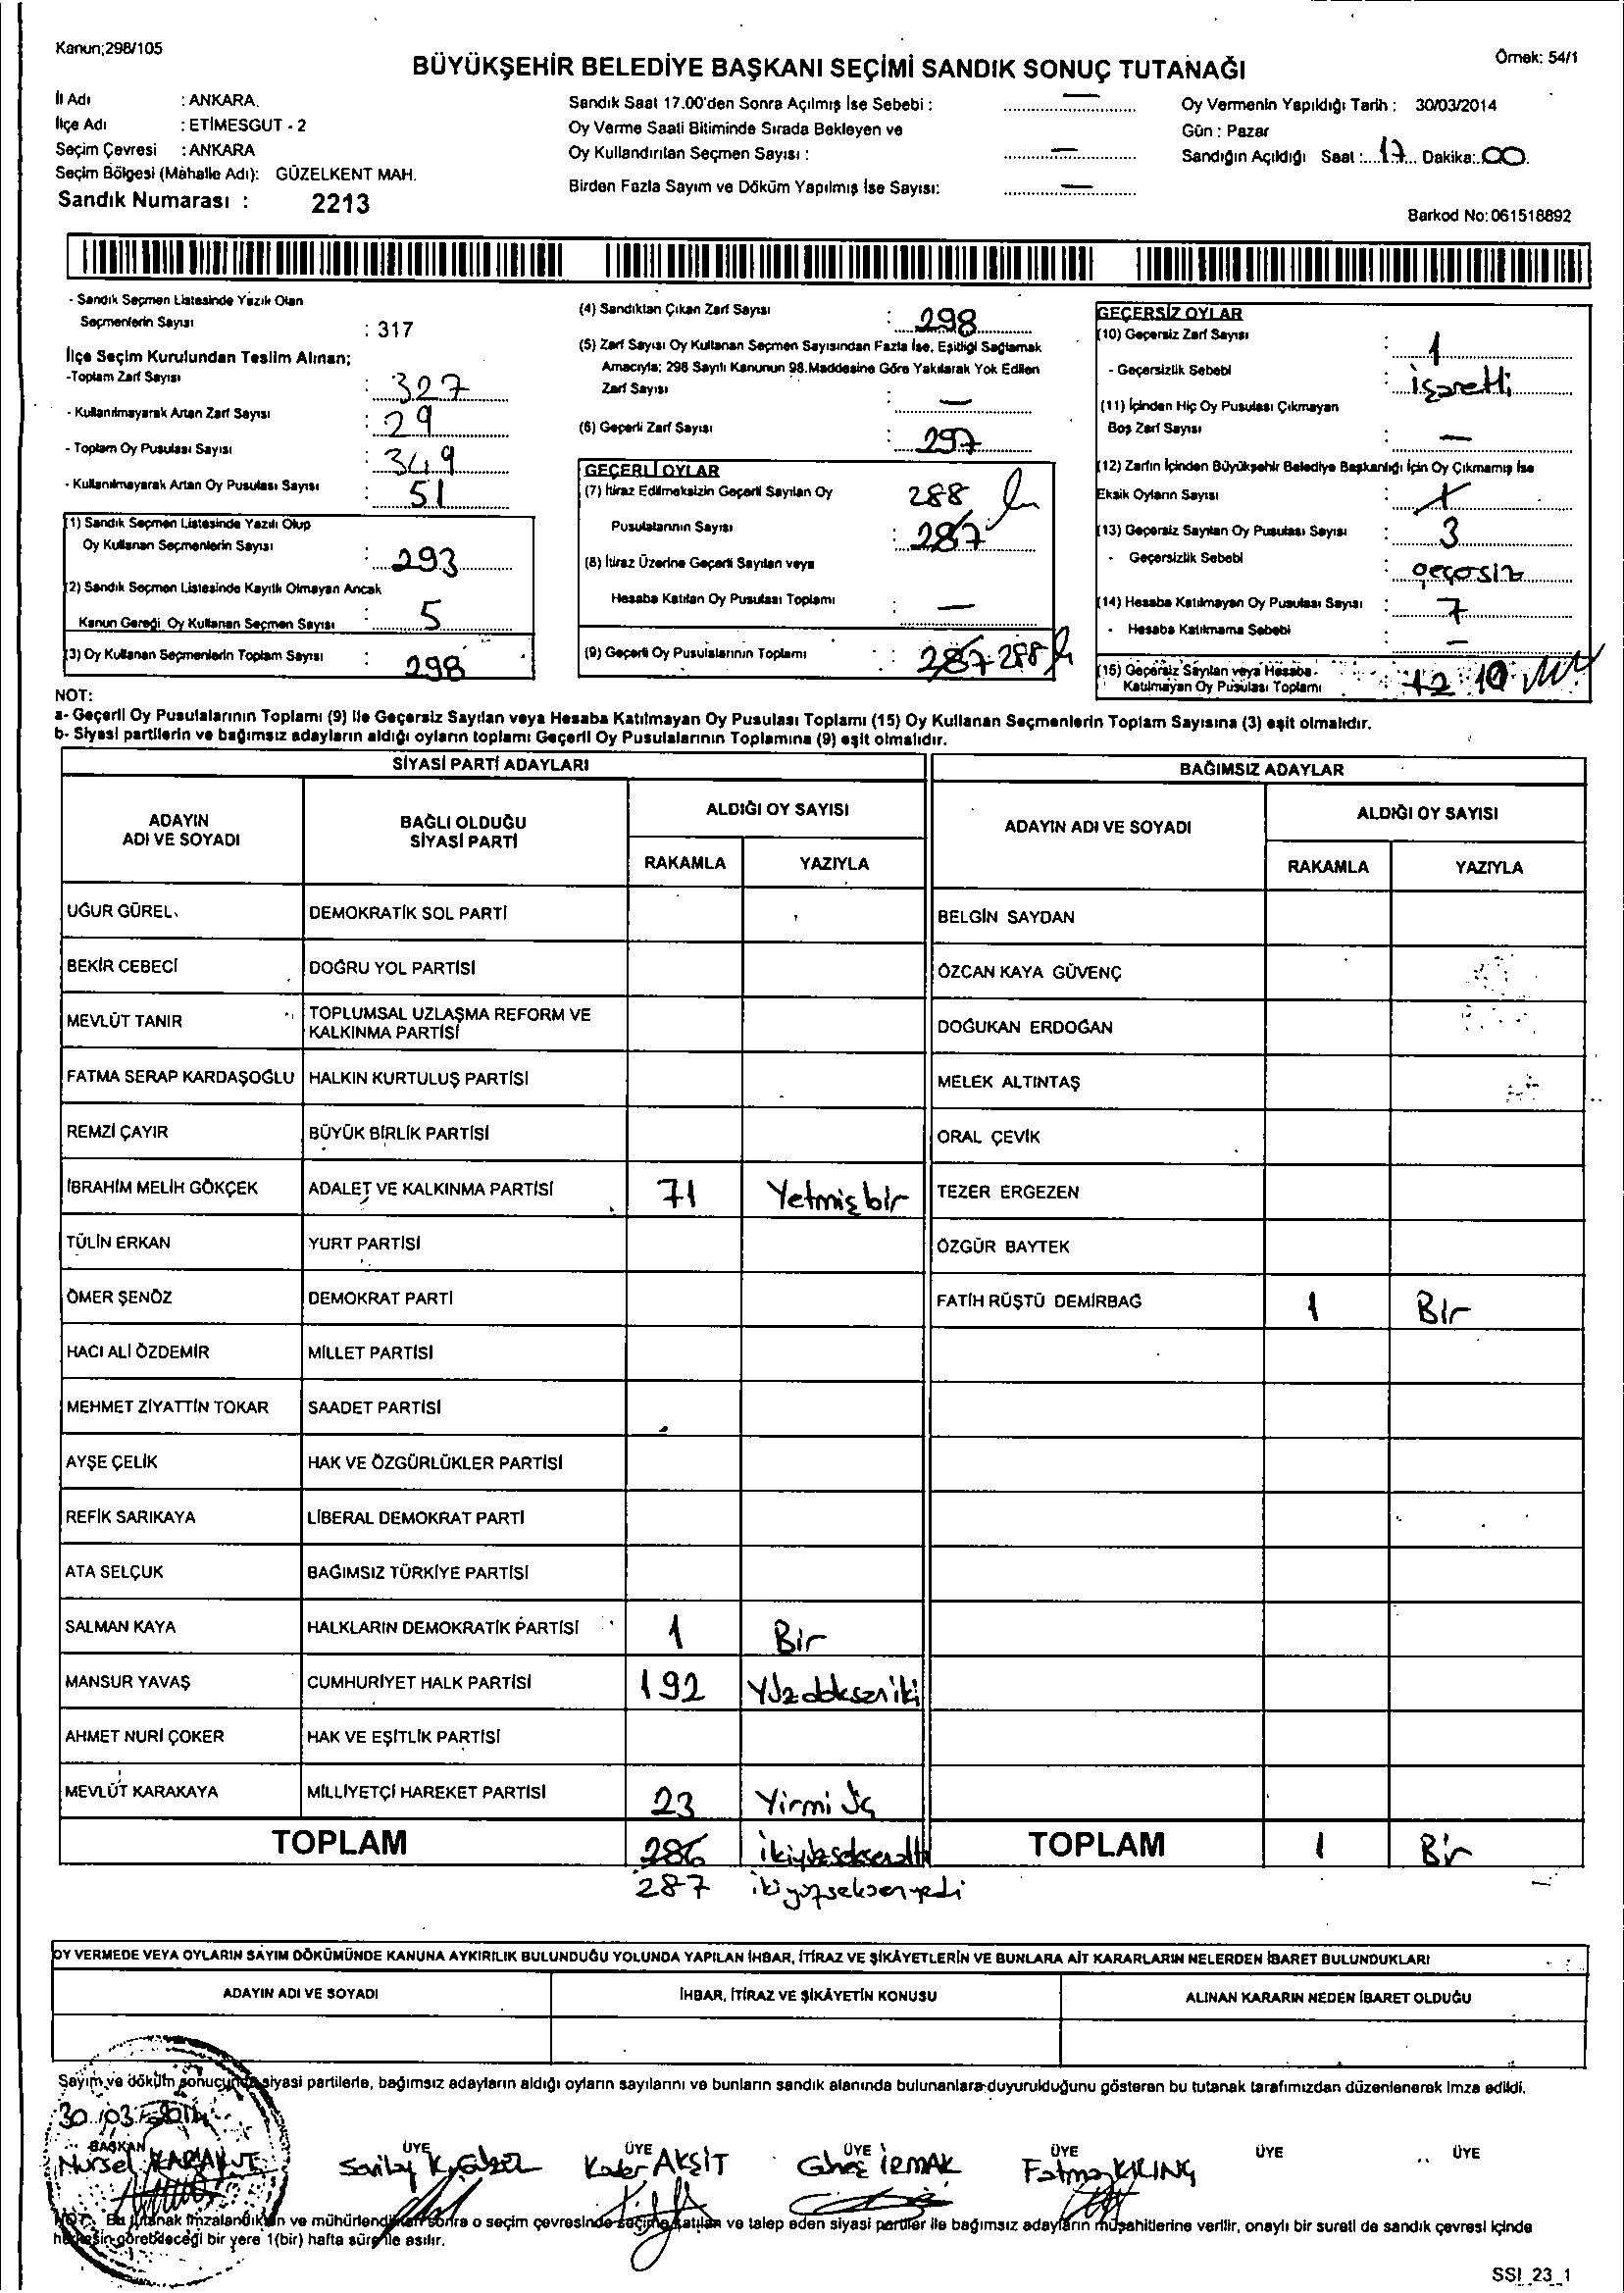 Kanun;298/105
Örnek: 54/1
BÜYÜKŞEHİR BELEDİYE BAŞKANI SEÇİMİ SANDIK SONUÇ TUTANAĞI
İl Adı : ANKARA
İlçe Adı : ETİMESGUT - 2
Seçim Çevresi : ANKARA
Seçim Bölgesi (Mahalle Adı): GÜZELKENT MAH.
Sandık Numarası : 2213
Sandık Saat 17.00'den Sonra Açılmış İse Sebebi : —
Oy Verme Saati Bitiminde Sırada Bekleyen ve
Oy Kullandırılan Seçmen Sayısı : —
Birden Fazla Sayım ve Döküm Yapılmış İse Sayısı: —
Oy Vermenin Yapıldığı Tarih : 30/03/2014
Gün : Pazar
Sandığın Açıldığı Saat :....17... Dakika:..00.
Barkod No:061518892
- Sandık Seçmen Listesinde Yazılı Olan
Seçmenlerin Sayısı : 317
İlçe Seçim Kurulundan Teslim Alınan;
-Toplam Zarf Sayısı : 327
- Kullanılmayarak Artan Zarf Sayısı : 29
- Toplam Oy Pusulası Sayısı : 349
- Kullanılmayarak Artan Oy Pusulası Sayısı : 51
(1) Sandık Seçmen Listesinde Yazılı Olup
Oy Kullanan Seçmenlerin Sayısı : 293
(2) Sandık Seçmen Listesinde Kayıtlı Olmayan Ancak
Kanun Gereği Oy Kullanan Seçmen Sayısı : 5
(3) Oy Kullanan Seçmenlerin Toplam Sayısı : 298
(4) Sandıktan Çıkan Zarf Sayısı : 298
(5) Zarf Sayısı Oy Kullanan Seçmen Sayısından Fazla İse, Eşitliği Sağlamak
Amacıyla; 298 Sayılı Kanunun 98.Maddesine Göre Yakılarak Yok Edilen
Zarf Sayısı : —
(6) Geçerli Zarf Sayısı : 297
GEÇERLİ OYLAR
(7) İtiraz Edilmeksizin Geçerli Sayılan Oy 288
Pusulalarının Sayısı : 287
(8) İtiraz Üzerine Geçerli Sayılan veya
Hesaba Katılan Oy Pusulası Toplamı : —
(9) Geçerli Oy Pusulalarının Toplamı : 287 288
GEÇERSİZ OYLAR
(10) Geçersiz Zarf Sayısı : 1
- Geçersizlik Sebebi : işaretli
(11) İçinden Hiç Oy Pusulası Çıkmayan
Boş Zarf Sayısı : —
(12) Zarfın İçinden Büyükşehir Belediye Başkanlığı İçin Oy Çıkmamış İse
Eksik Oyların Sayısı
(13) Geçersiz Sayılan Oy Pusulası Sayısı : 3
- Geçersizlik Sebebi : geçersiz
(14) Hesaba Katılmayan Oy Pusulası Sayısı : 7
- Hesaba Katılmama Sebebi : —
(15) Geçersiz Sayılan veya Hesaba
Katılmayan Oy Pusulası Toplamı : 12 10
NOT:
a- Geçerli Oy Pusulalarının Toplamı (9) ile Geçersiz Sayılan veya Hesaba Katılmayan Oy Pusulası Toplamı (15) Oy Kullanan Seçmenlerin Toplam Sayısına (3) eşit olmalıdır.
b- Siyasi partilerin ve bağımsız adayların aldığı oyların toplamı Geçerli Oy Pusulalarının Toplamına (9) eşit olmalıdır.
SİYASİ PARTİ ADAYLARI
BAĞIMSIZ ADAYLAR
ADAYIN
ADI VE SOYADI
BAĞLI OLDUĞU
SİYASİ PARTİ
ALDIĞI OY SAYISI
RAKAMLA YAZIYLA
ADAYIN ADI VE SOYADI
ALDIĞI OY SAYISI
RAKAMLA YAZIYLA
UĞUR GÜREL DEMOKRATİK SOL PARTİ BELGİN SAYDAN
BEKİR CEBECİ DOĞRU YOL PARTİSİ ÖZCAN KAYA GÜVENÇ
MEVLÜT TANIR TOPLUMSAL UZLAŞMA REFORM VE
KALKINMA PARTİSİ DOĞUKAN ERDOĞAN
FATMA SERAP KARDAŞOĞLU HALKIN KURTULUŞ PARTİSİ MELEK ALTINTAŞ
REMZİ ÇAYIR BÜYÜK BİRLİK PARTİSİ ORAL ÇEVİK
İBRAHİM MELİH GÖKÇEK ADALET VE KALKINMA PARTİSİ 71 Yetmişbir TEZER ERGEZEN
TÜLİN ERKAN YURT PARTİSİ ÖZGÜR BAYTEK
ÖMER ŞENÖZ DEMOKRAT PARTİ FATİH RÜŞTÜ DEMİRBAĞ 1 Bir
HACI ALİ ÖZDEMİR MİLLET PARTİSİ
MEHMET ZİYATTİN TOKAR SAADET PARTİSİ
AYŞE ÇELİK HAK VE ÖZGÜRLÜKLER PARTİSİ
REFİK SARIKAYA LİBERAL DEMOKRAT PARTİ
ATA SELÇUK BAĞIMSIZ TÜRKİYE PARTİSİ
SALMAN KAYA HALKLARIN DEMOKRATİK PARTİSİ 1 Bir
MANSUR YAVAŞ CUMHURİYET HALK PARTİSİ 192 Yüzdoksaniki
AHMET NURİ ÇOKER HAK VE EŞİTLİK PARTİSİ
MEVLÜT KARAKAYA MİLLİYETÇİ HAREKET PARTİSİ 23 Yirmi Üç
TOPLAM 286 ikiyüzseksenaltı TOPLAM 1 Bir
287 ikiyüzseksenyedi
OY VERMEDE VEYA OYLARIN SAYIM DÖKÜMÜNDE KANUNA AYKIRILIK BULUNDUĞU YOLUNDA YAPILAN İHBAR, İTİRAZ VE ŞİKÂYETLERİN VE BUNLARA AİT KARARLARIN NELERDEN İBARET BULUNDUKLARI
ADAYIN ADI VE SOYADI İHBAR, İTİRAZ VE ŞİKÂYETİN KONUSU ALINAN KARARIN NEDEN İBARET OLDUĞU
Sayım ve döküm sonucunda siyasi partilerle, bağımsız adayların aldığı oyların sayılarını ve bunların sandık alanında bulunanlara duyurulduğunu gösteren bu tutanak tarafımızdan düzenlenerek imza edildi.
30/03/2014
BAŞKAN ÜYE ÜYE ÜYE ÜYE ÜYE ÜYE
Nursel KARAKURT Kader AKŞİT IRMAK Fatma KILINÇ
NOT: Bu tutanak imzalandıktan ve mühürlendikten sonra o seçim çevresinde seçime katılan ve talep eden siyasi partiler ile bağımsız adayların müşahitlerine verilir, onaylı bir sureti de sandık çevresi içinde
herkesin görebileceği bir yere 1(bir) hafta süre ile asılır.
SSI_23_1